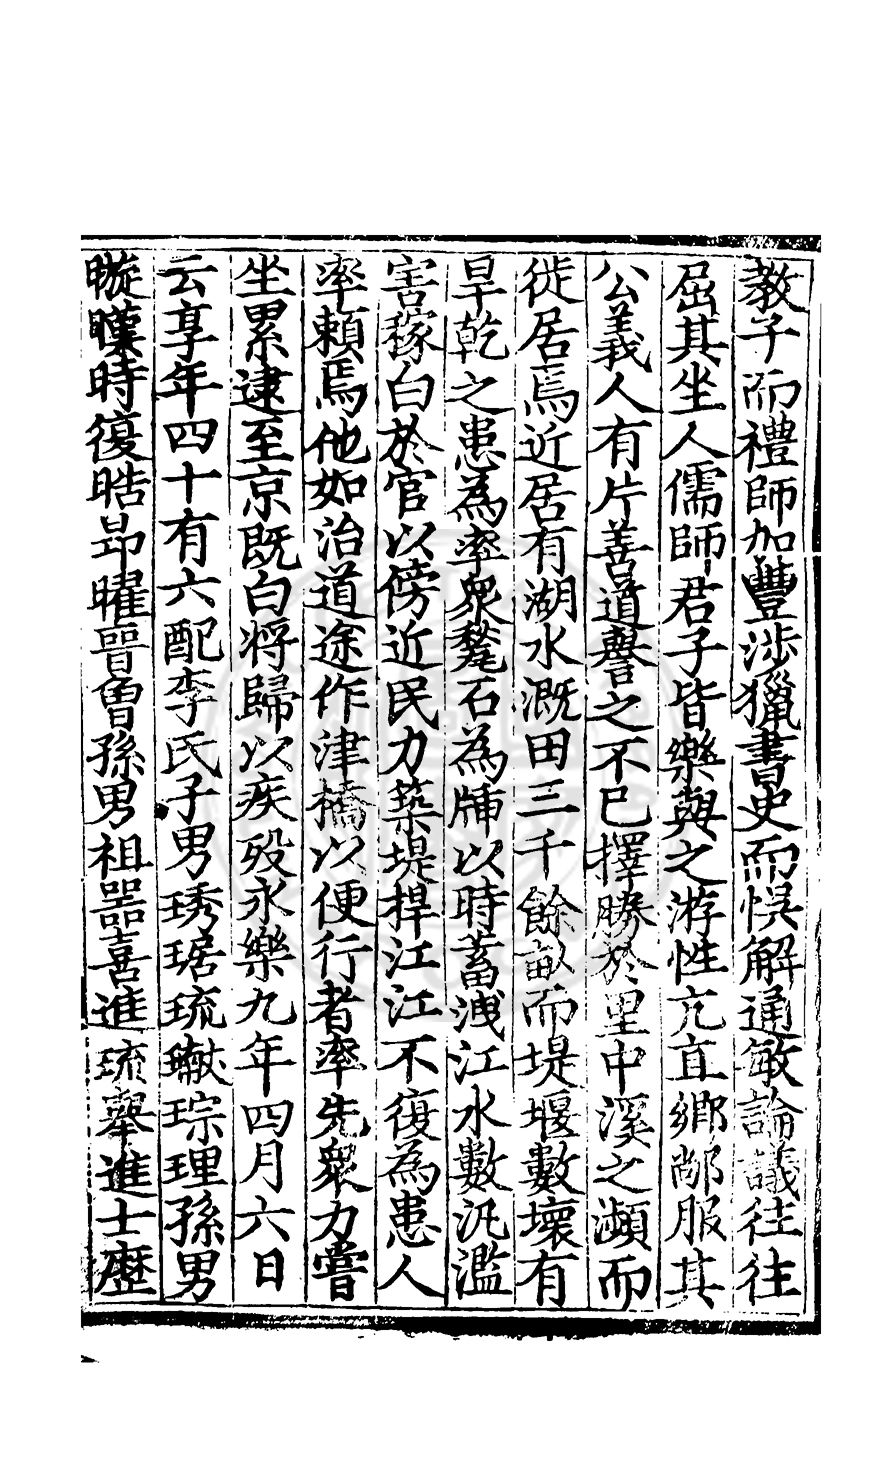 教子而禮師加豐涉獵書史而悮解通敏論議往往
屈其坐人儒師君子皆樂與之游性亢直鄉鄰服其
公義人有片善道譽之不已擇勝於里中溪之瀕而
徙居焉近居有湖水溉田三千餘畝而堤堰數壞有
旱乾之患為率衆甃石為牐以時蓄洩江水數汎濫
害稼白於官以傍近民力築堤捍江江不復為患人
率賴焉他如治道途作津橋以便行者率先衆力嘗
坐累逮至京既白将歸以疾歿永樂九年四月六日
云享年四十有六配李氏子男琇琚琉瓛琮理孫男
暶暵時復晧昻曜晉魯孫男祖噐喜進琉舉進士歷